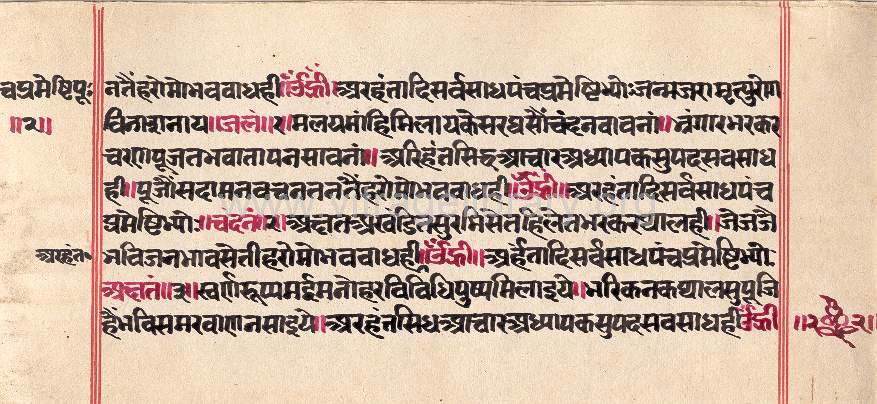 चप्रमेष्टिपू॰
॥२॥
अरहंत॰
नतैंहरोमोभववाधही॥ॐह्रीं॥अरहंतादिसर्वसाधपंचप्रमेष्टिभ्योःजन्मजरामृत्युरोग
विनाशनाय॥जलं॥१॥मलयमांहिमिलायकेसरघसौंचंदनवावनां॥भृंगारभरकर
चरणपूजतभवातापनसावनां॥अरिहंतसिद्धआचारअध्यापकसुपदसवसाध
ही॥पूजौंसदामनवचनतनतैंहरोमोभववाधही॥ॐह्रीं॥अरहंतादिसर्वसाधपंच
प्रमेष्टिभ्योः॥चंदनं॥२॥अक्षतअखंडितसुरभिसेतहिलेतभरकरथालही॥जेजजै
भविजनभावसेतीहरोमोभववाधही॥ॐह्रीं॥अर्हंतादिसर्वसाधपंचप्रमेष्टिभ्यो
अक्षतं॥३॥स्वर्णरूप्यमईमनोहरविविधिपुष्पमिलाइये॥भरिकनकथालसुपूजि
हैंभविसमरवाणनसाइये॥अरहंतसिधआचारअध्यापकसुपदसवसाधही॥ॐह्रीं
॥२ २॥